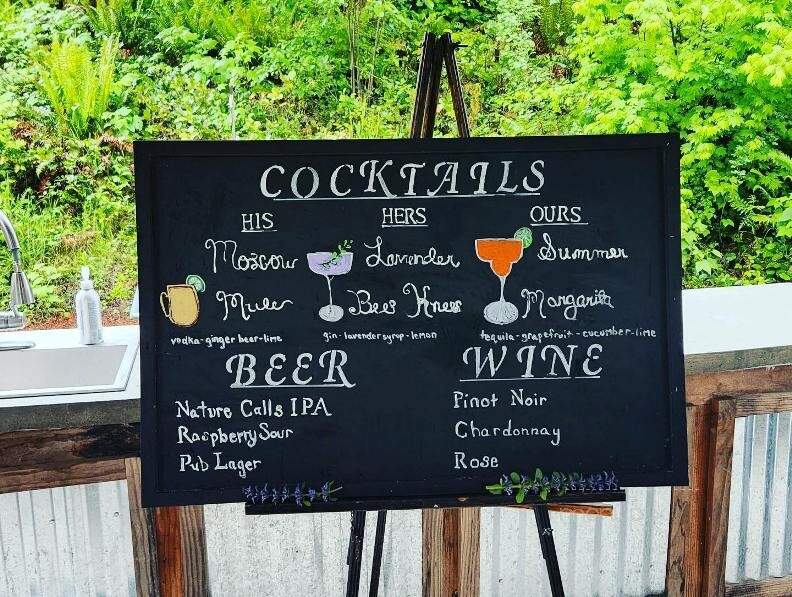 COCKTAILS
HIS
Moscow
Mule
vodka-ginger beer-lime
HERS
Lavender
Bees Knees
gin-lavender syrup-lemon
OURS
Summer
Margarita
tequila-grapefruit-cucumber-lime
BEER
Nature Calls IPA
Raspberry Sour
Pub Lager
WINE
Pinot Noir
Chardonnay
Rose